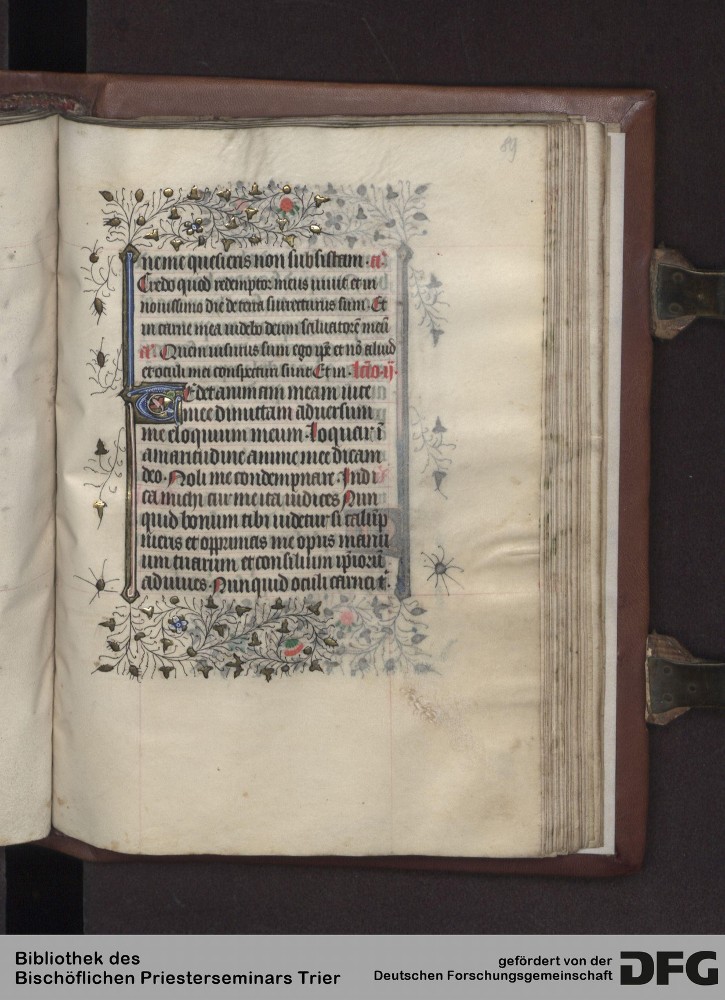 89
ne me quesieris non subsistam. R.
Credo quod redemptor meus vivit et in
novissimo die de terra surrecturus sum. Et
in carne mea videbo deum salvatorē meū
V. Quem visurus sum ego ip̄e et nō alius
et oculi mei conspecturi sunt. Et in. Lc̄io ij.
Tedet animam meam vite
mee dimittam adversum
me eloquium meum. Loquar ī
amaritudine anime mee dicam
deo. Noli me condempnare. Indi
ca michi cur me ita iudices. Nun
quid bonum tibi videtur si calūp
nieris et opprimas me opus manu
um tuarum et consilium īpiorū
adiuves. Nunquid oculi carnei t̄
Bibliothek des
Bischöflichen Priesterseminars Trier
gefördert von der
Deutschen Forschungsgemeinschaft
DFG